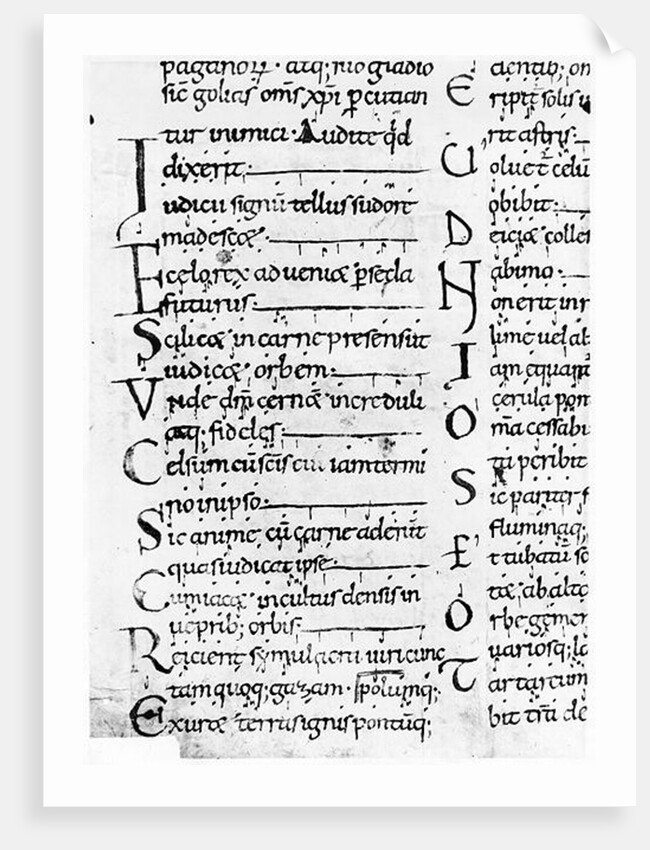 paganoꝝ · atq; suo gladio
sic̄ golias om̄s xp̄i ꝑcutian
tur inimici · Audite q̄d
dixerit
Iudicii signū tellus sudore
madescæ
E celo rex adveniæ ꝑ secla
futurus
Scilicæ in carne presens ut
iudicæ orbem
Vnde dm̄ cernæ increduli
atq; fideles
Celsum cū sc̄is eui iam termi
no in ipso
Sic anime cū carne aderūt
quas iudicat ipse
Cum iacæ incultus densis in
ueprib; orbis
Reicient symulacra uiri cunc
tam quoq; gazam · spoliumq;
Exuræ terras ignis pontūq;
cientib; on
Eript solis i
rit astris
Uoluet celū
obibit
Deiciæ colle
ab imo
Non erit in r
lime uel al
Iam equant
cerula pon
Om̄a cessabi
ta peribit
Sic pariter f
fluminaq;
Et tubā tū so
tæ ab alto
Orbe gemen
uariosq; la
Tartareum
bit tr̄a de